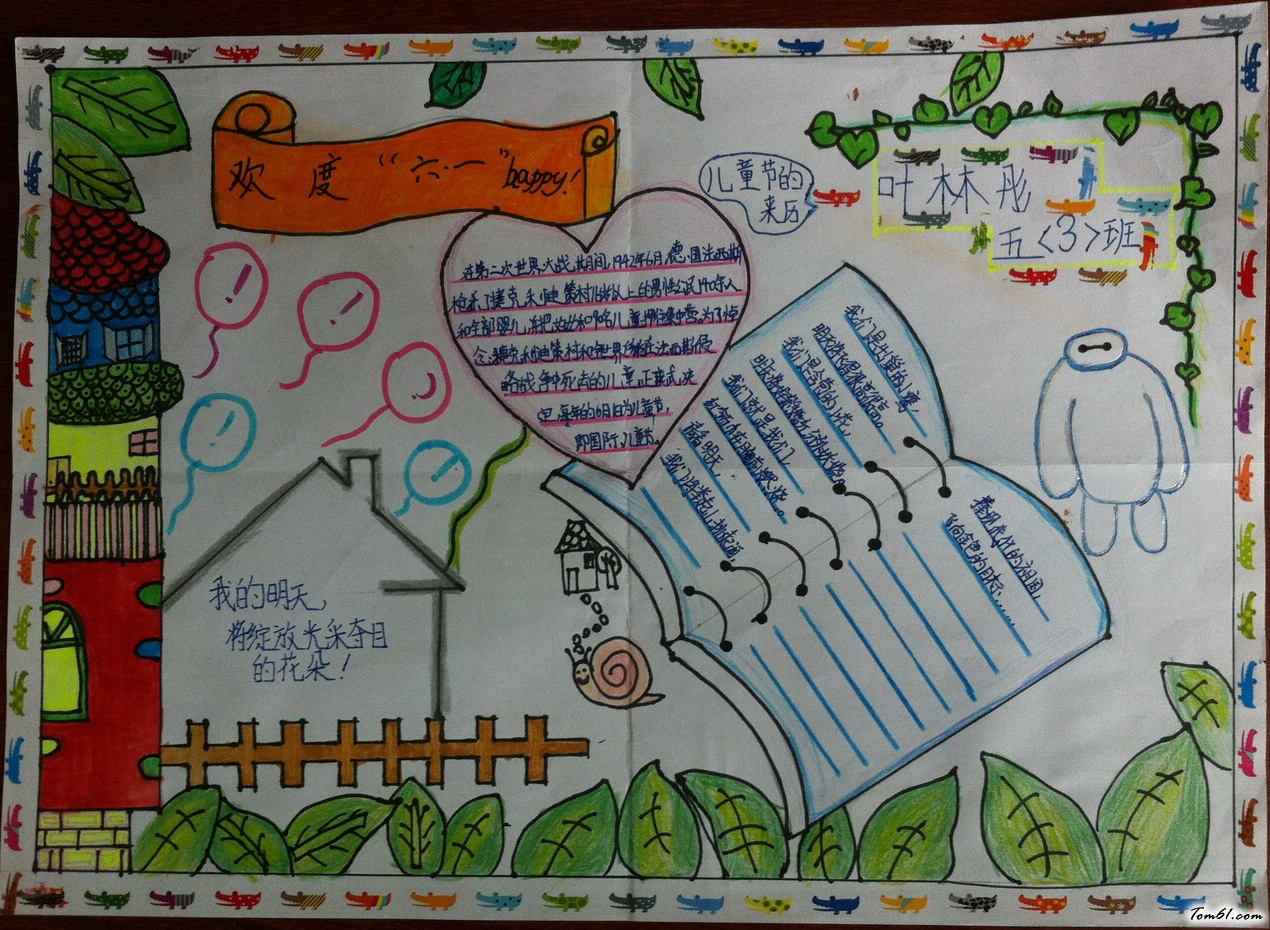 欢度“六·一”happy!
儿童节的
来历
叶林彤
五<3>班
在第二次世界大战期间,1942年6月,德国法西斯
枪杀了捷克利迪策村16岁以上的男性公民140余人
和全部婴儿,并把妇女和90名儿童押往集中营。为了悼
念捷克利迪策村和全世界所有在法西斯侵
略战争中死去的儿童,正式决
定每年的6月1日为儿童节,
即国际儿童节。
我们是出壳的小鹰,
明天将飞得很高很高。
我们是含苞的小花,
明天将
我们就是我们,
看看明天,
我们将
我们的祖国,
飞向金色的目标……
我的明天,
将绽放光采夺目
的花朵!
Tom61.com